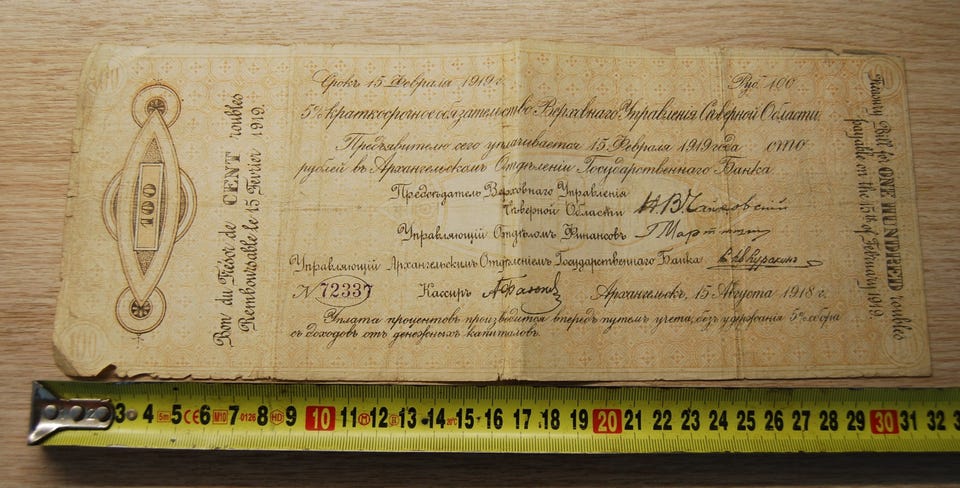 100
Bon du Trésor de CENT roubles
Remboursable le 15 Fevrier 1919.
Срокъ 15 Февраля 1919 г. Руб. 100
5% краткосрочное обязательство Верховнаго Управленія Сѣверной Области
Предъявителю сего уплачивается 15 Февраля 1919 года сто
рублей въ Архангельскомъ Отдѣленіи Государственнаго Банка.
Предсѣдатель Верховнаго Управленія
Сѣверной Области Н. В. Чайковскій
Управляющій Отдѣломъ Финансовъ
Управляющій Архангельскимъ Отдѣленіемъ Государственнаго Банка
N 72337 Кассиръ Архангельскъ, 15 Августа 1918 г.
Уплата процентовъ производится впередъ путемъ учета, безъ удержанія 5% сбора
съ доходовъ отъ денежныхъ капиталовъ.
Treasury Bill for ONE HUNDRED roubles
payable on the 15th of February 1919.
3 4 5m 5 CE 6 M10 7 0126 8 9 10 11 12 13 14 20°C 15 16 17 18 19 20 21 22 23 24 25 26 27 28 29 30 31 32